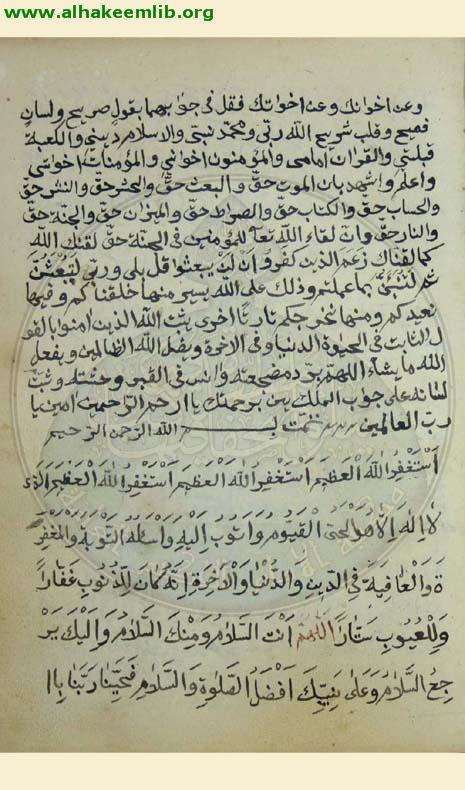 www.alhakeemlib.org
وعن اخوانك وعن اخواتك فقل فى جوابهما بقول صريح ولسان
فصيح وقلب شريح الله ربّى ومحمّد نبيّى والاسلام دينى والكعبة
قبلتى والقران امامى والمؤمنون اخوانى والمؤمنات اخواتى
واعلم واشهد بان الموت حقّ والبعث حقّ والحشر حقّ والنشر حقّ
والحساب حقّ والكتاب حقّ والصراط حقّ والميزان حقّ والجنّة حقّ
والنار حقّ وانّ لقاء اللّه تعا للمؤمنين فى الجنّة حقّ لقنك اللّه
كما لقناك زعم الذين كفروا ان لن يبعثوا قل بلى وربّى لتبعثنّ
ثم لتنبؤنّ بما عملتم وذلك على الله يسير منها خلقناكم وفيها
نعيدكم ومنها نخرجكم تارة اخرى يثبت اللّه الذين امنوا بالقو
ل الثابت فى الحيوة الدنيا وفى الاخرة ويضل اللّه الظالمين ويفعل
اللّه ما يشاء اللهم برّد مضجعه وانس فى القبر وحشته وثبّت
لسانه على جواب الملكين برحمتك يا ارحم الرّحمين امين يا
ربّ العالمين تمّت بسم الله الرّحمن الرّحيم
اَسْتَغْفِرُ اللّٰهَ الْعَظِيمَ اَسْتَغْفِرُ اللّٰهَ الْعَظِيمَ اَسْتَغْفِرُ اللّٰهَ الْعَظِيمَ الَّذِى
لاَ اِلٰهَ اِلاَّ هُوَ الْحَىُّ الْقَيُّومُ وَاَتُوبُ اِلَيْهِ وَاَسْئَلُهُ التَّوْبَةَ وَالْمَغْفِرَ
ةَ وَالْعَافِيَةَ فِى الدِّينِ وَالدُّنْيَا وَالْاٰخِرَةِ اِنَّهُ كَانَ لِلذُّنُوبِ غَفَّارًا
وَلِلْعُيُوبِ سَتَّارًا اَللّٰهُمَّ اَنْتَ السَّلاَمُ وَمِنْكَ السَّلاَمُ وَاِلَيْكَ يَرْ
جِعُ السَّلاَمُ وَعَلٰى نَبِيِّكَ اَفْضَلُ الصَّلٰوةِ وَالسَّلاَمِ فَحَيِّنَا رَبَّنَا بِاا